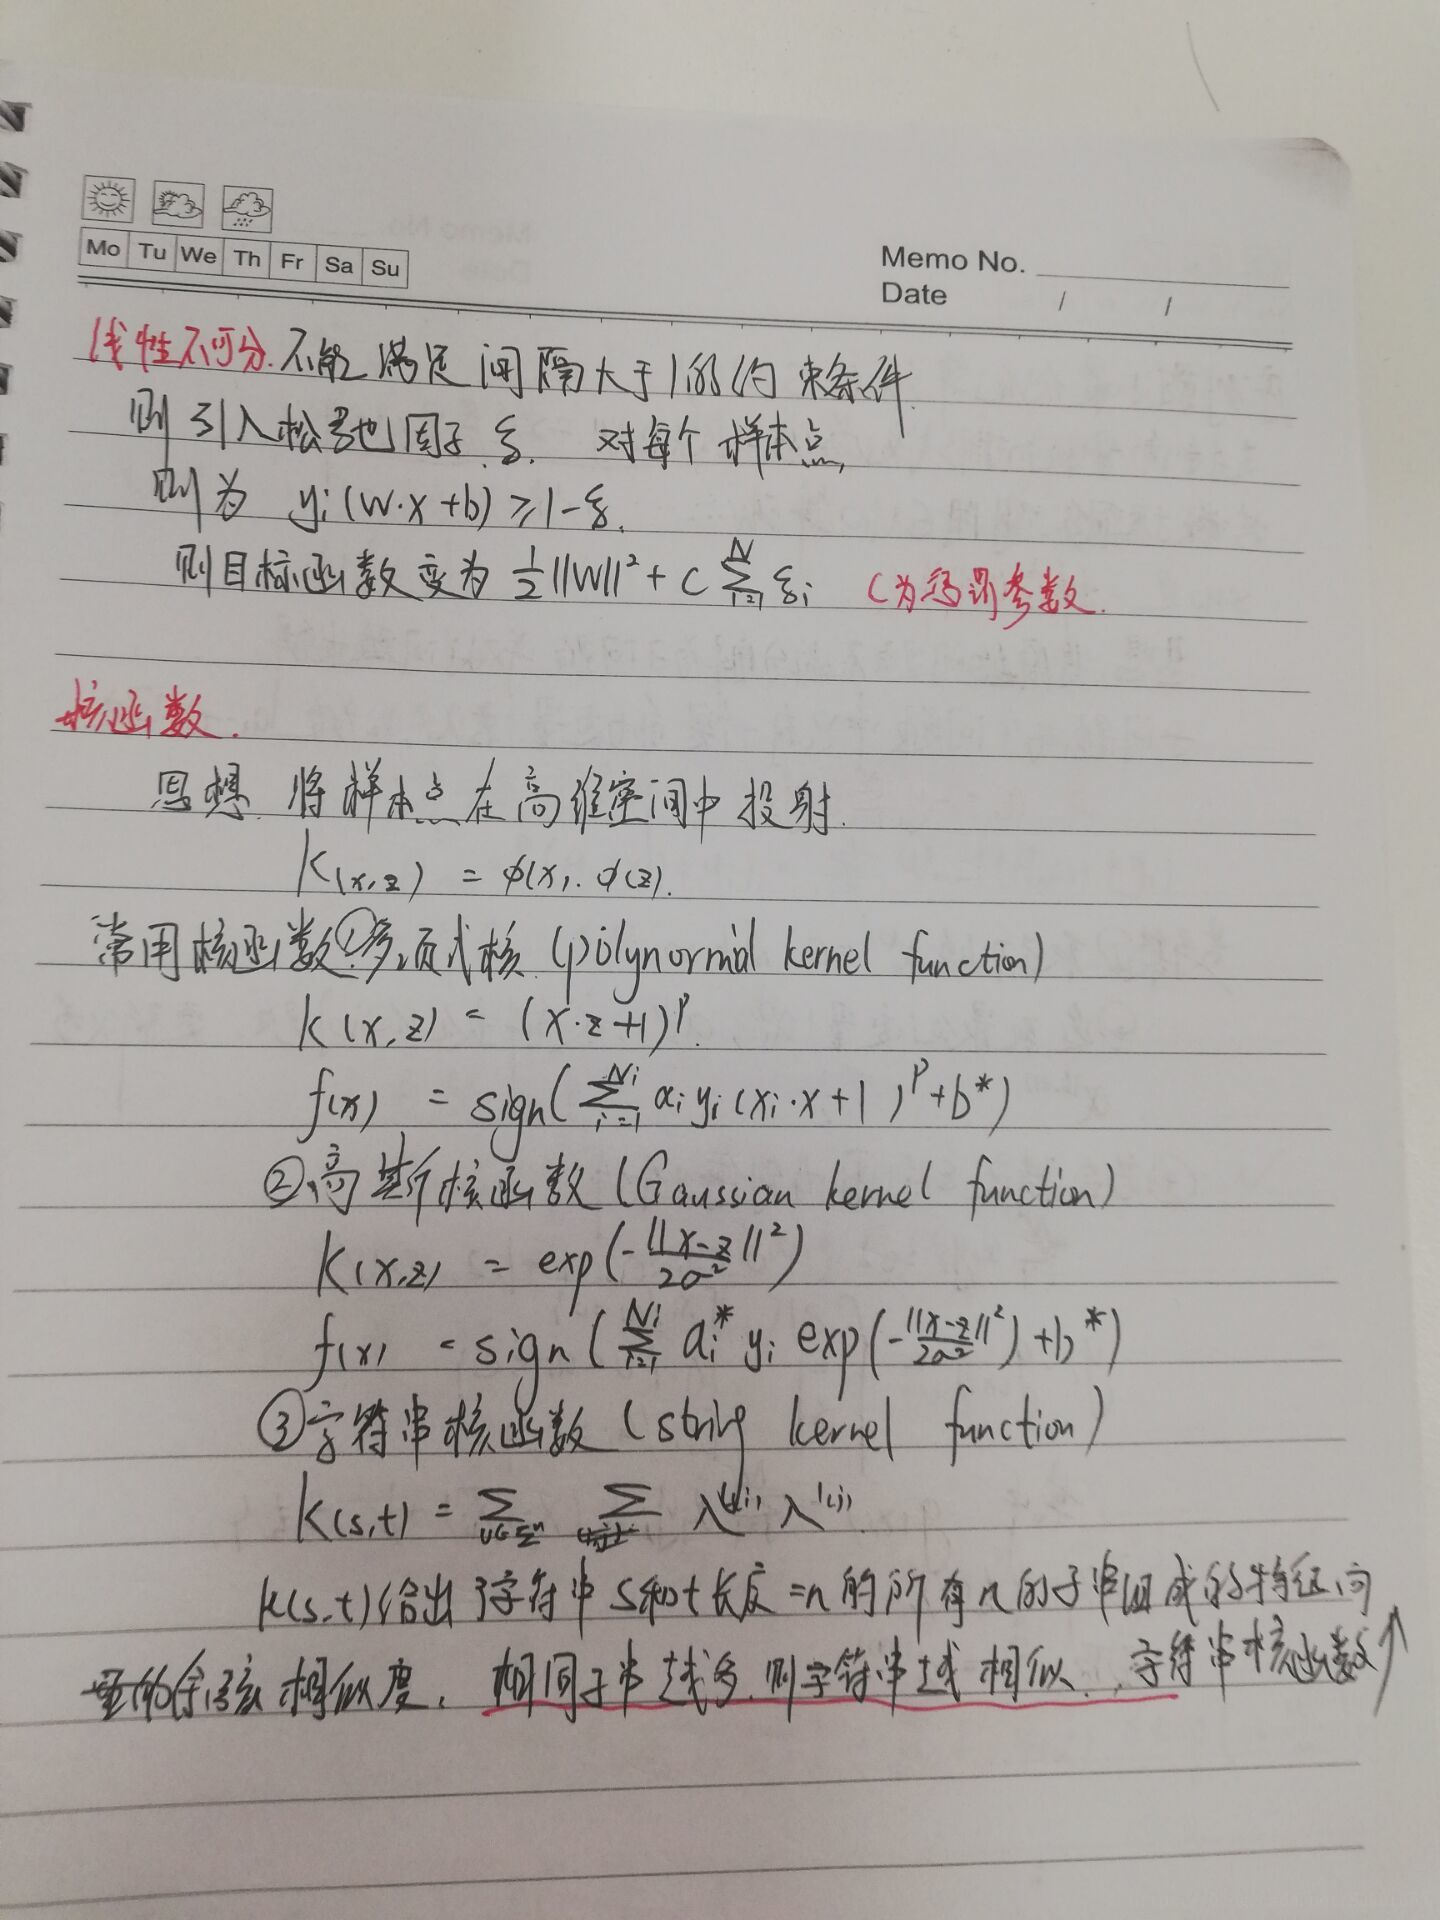 Mo Tu We Th Fr Sa Su
Memo No.
Date / /
线性不可分. 不能满足间隔大于1的约束条件.
则引入松弛因子 ξ. 对每个样本点,
则为 yᵢ(w·x+b) ≥ 1-ξ.
则目标函数变为 ½||W||² + C ∑ᵢ₌₁ᴺ ξᵢ C为惩罚参数.
核函数.
思想. 将样本点在高维空间中投射.
K(x,z) = φ(x)·φ(z).
常用核函数 ①多项式核 (polynormial kernel function)
K(x,z) = (x·z+1)ᵖ.
f(x) = sign(∑ᵢ₌₁ᴺⁱ αᵢyᵢ(xᵢ·x+1)ᵖ+b*)
②高斯核函数 (Gaussian kernel function)
K(x,z) = exp(-||x-z||²/2σ²)
f(x) = sign(∑ᵢ₌₁ᴺⁱ aᵢ* yᵢ exp(-||x-z||²/2σ²)+b*)
③字符串核函数 (string kernel function)
K(s,t) = ∑ ∑ λ λ
k(s,t)给出字符串s和t长度=n的所有n的子串组成的特征向
量的余弦相似度. 相同子串越多,则字符串越相似. 字符串核函数↑